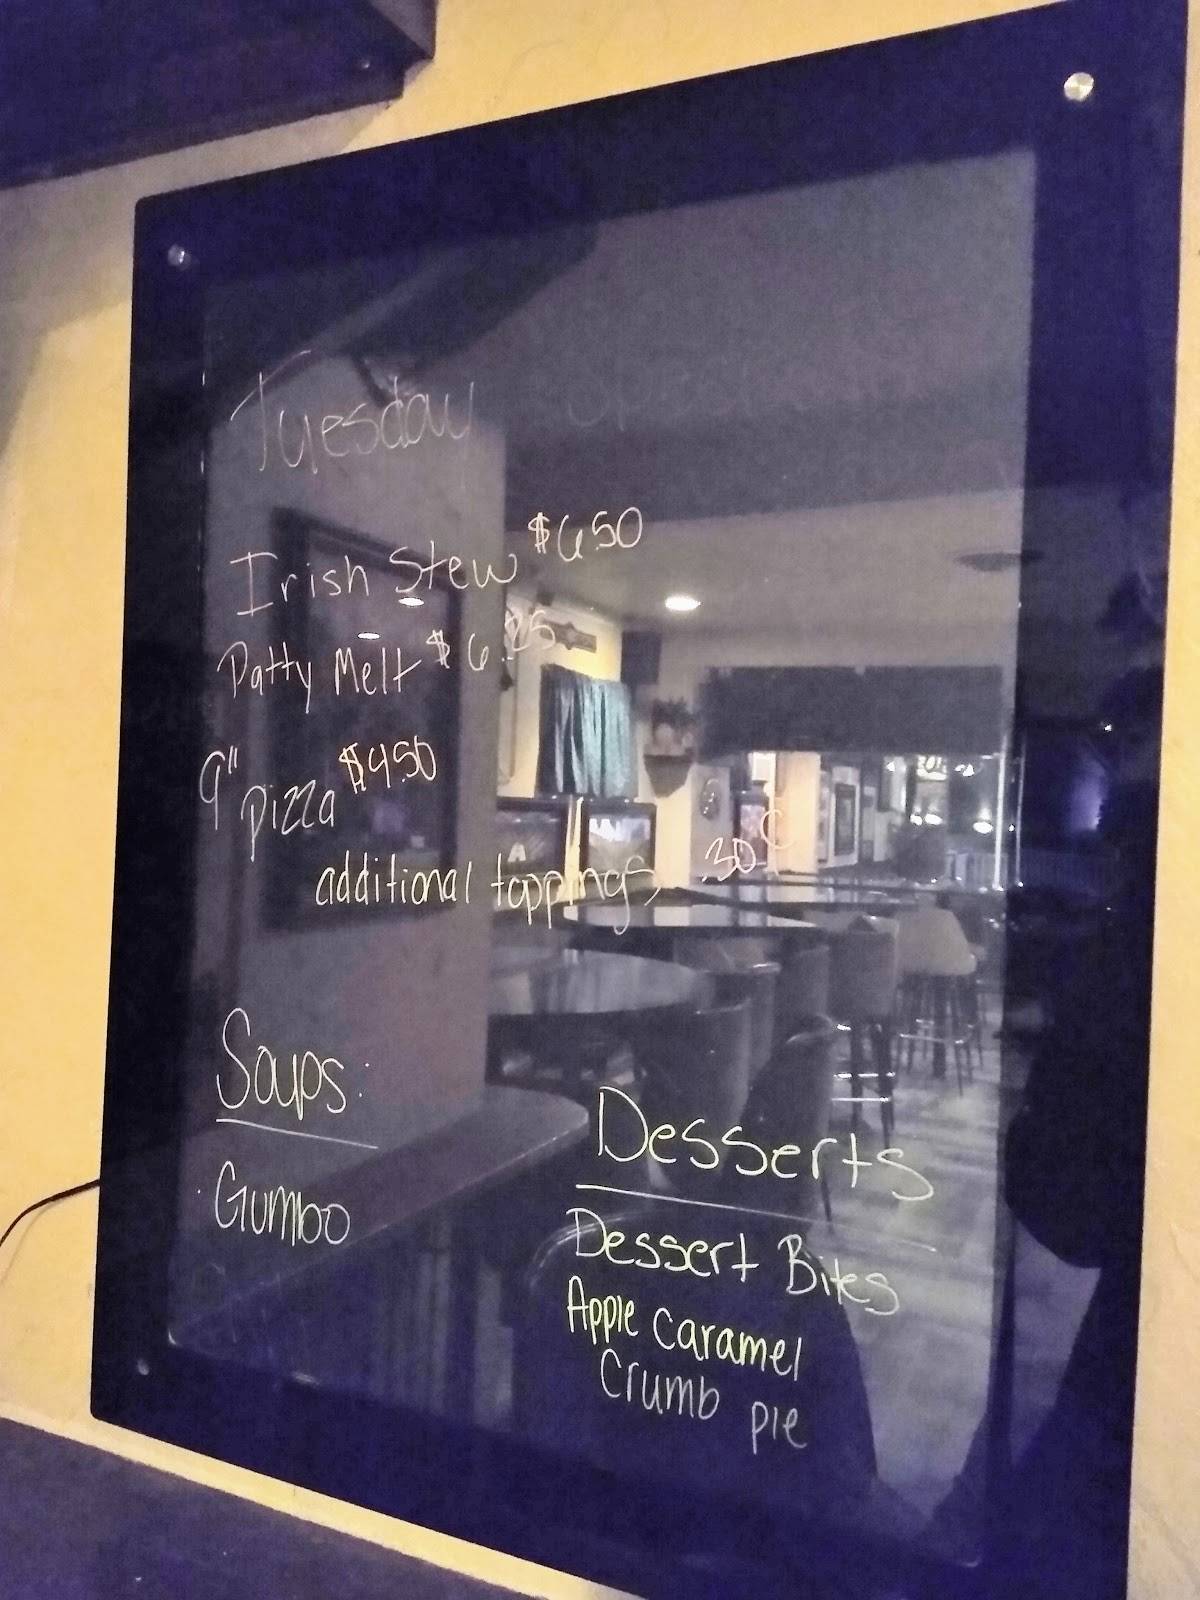 Tuesday
Irish Stew $6.50
Patty Melt $6.25
9" Pizza $4.50
additional toppings .30¢
Soups:
Gumbo
Desserts
Dessert Bites
Apple Caramel
Crumb pie